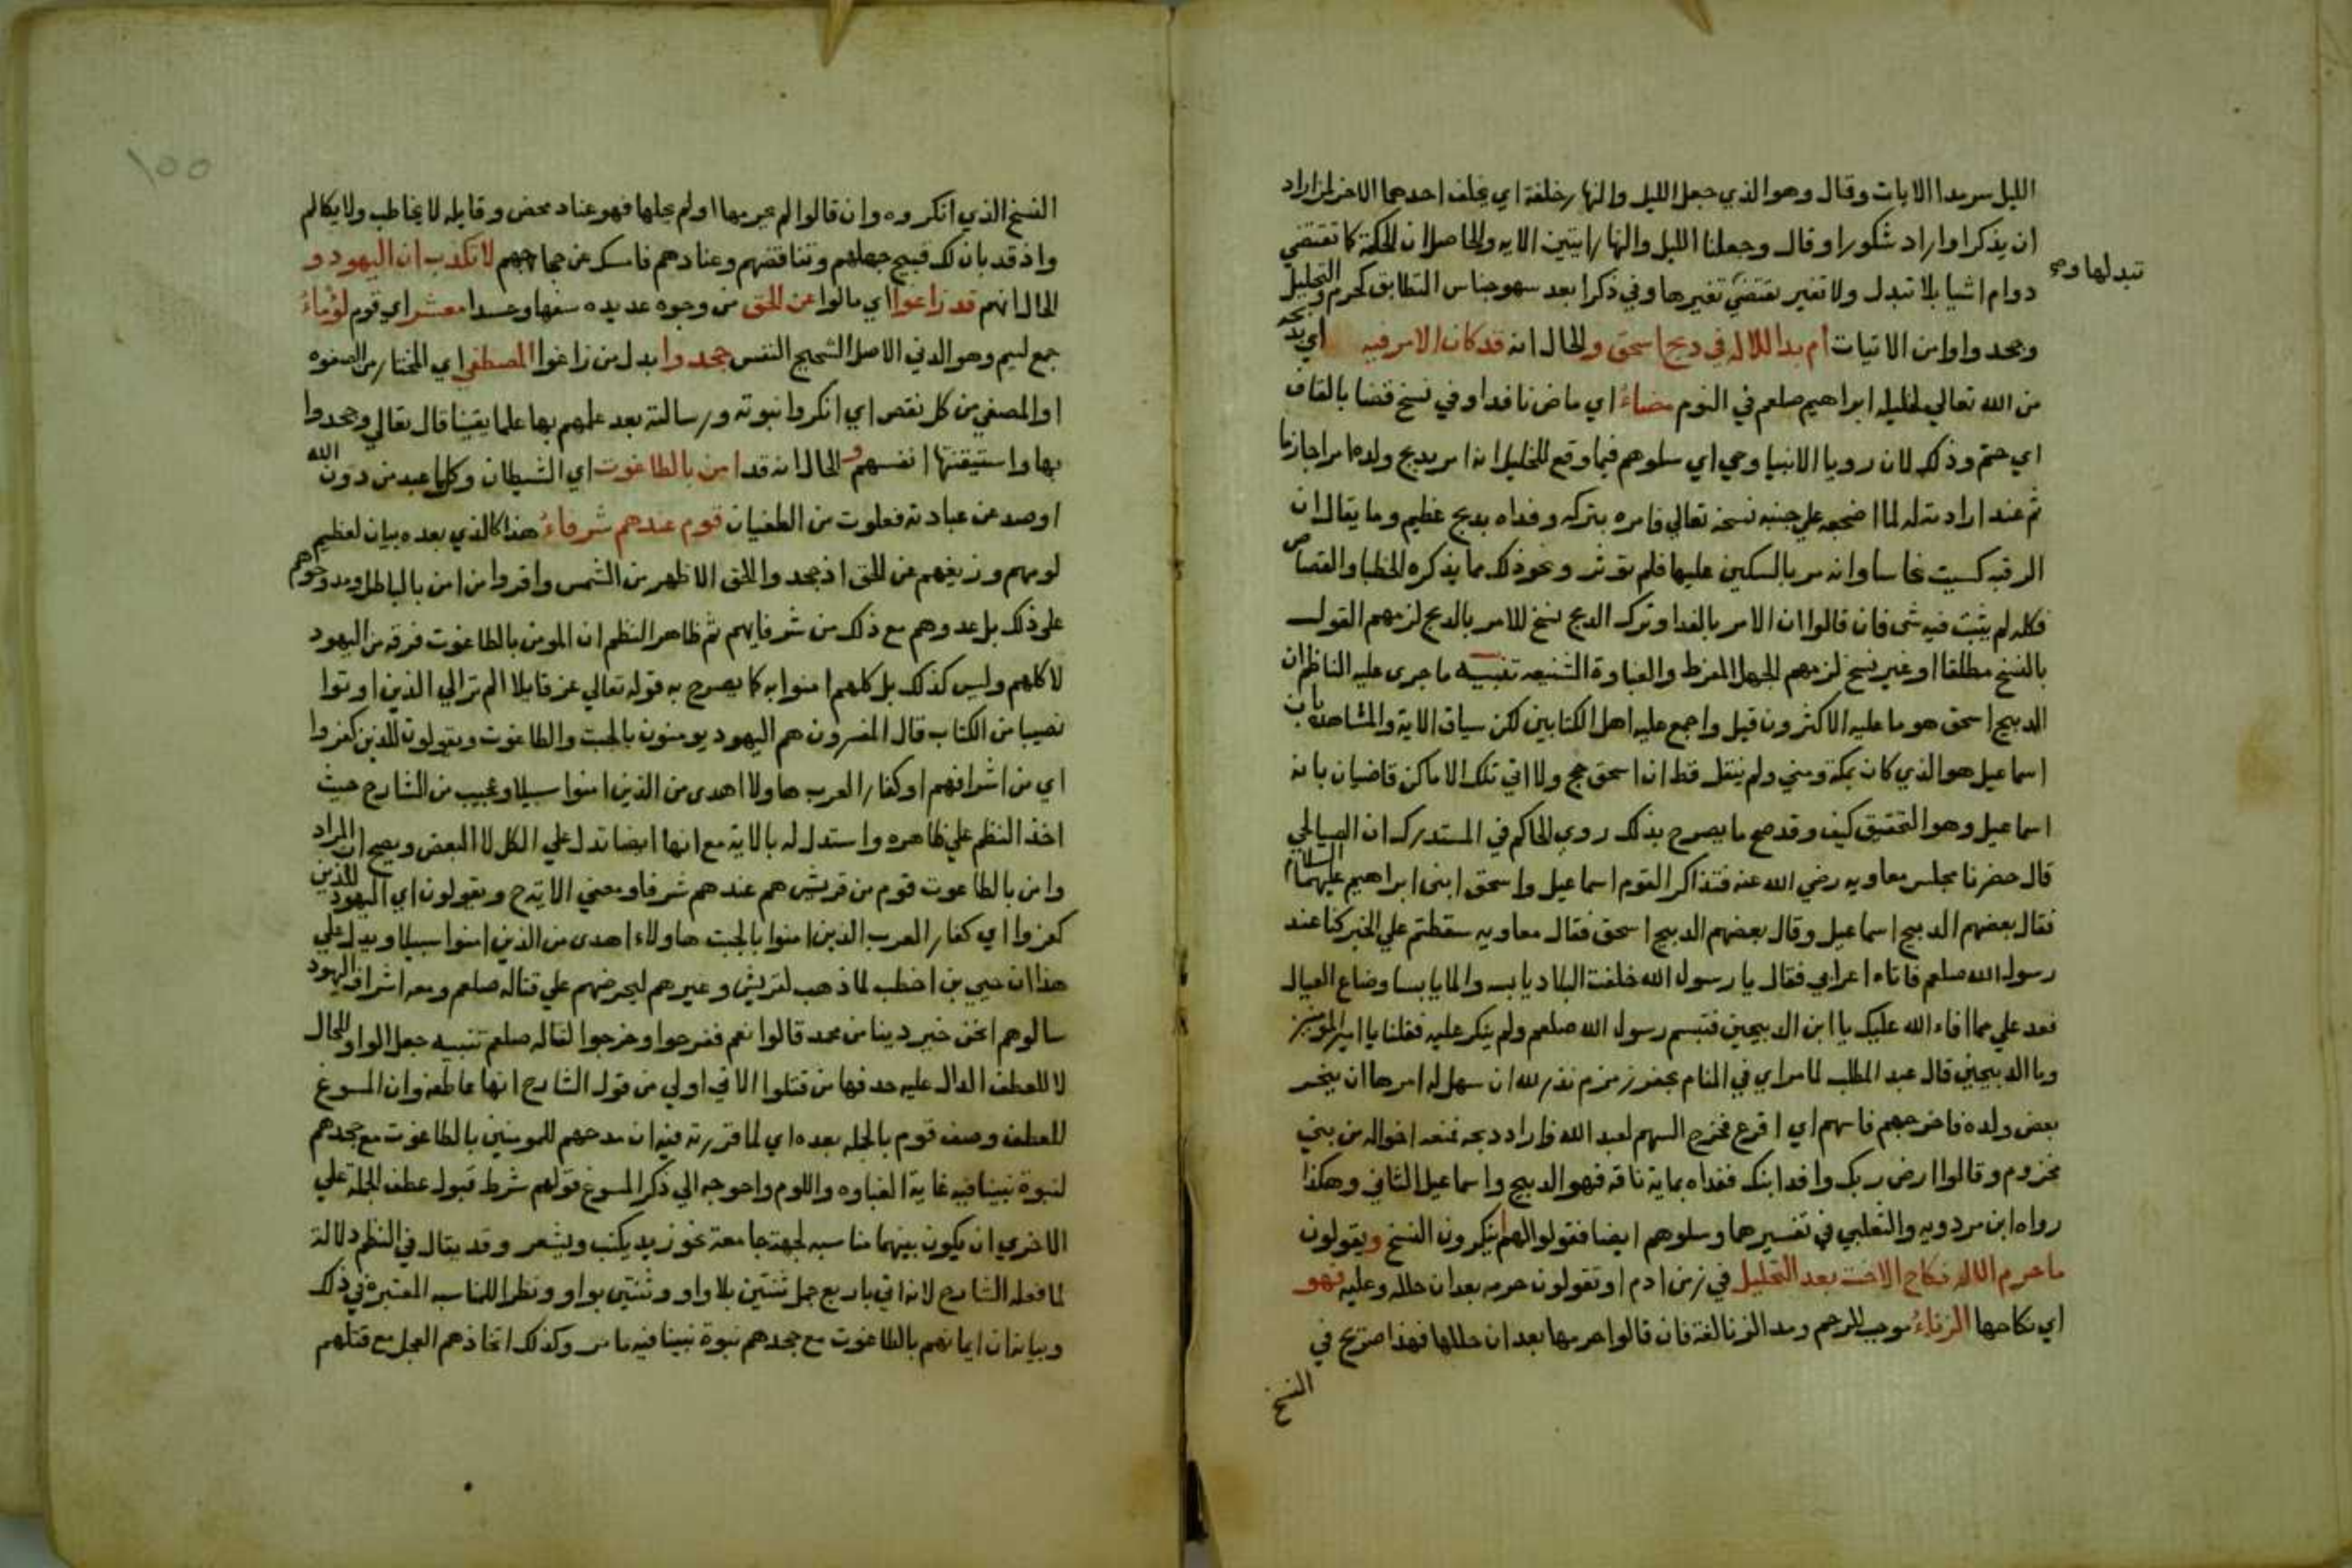 الليل سرمدا الايات وقال وهو الذي جعل الليل والنهار خلفة اي يخلف احدهما الاخر لمن اراد
ان يذكر او اراد شكورا وقال وجعلنا الليل والنهار ايتين الايه والحاصل ان الحكمة كما تقتضي
تبدلها وهي
دوام اشيا بلا تبدل ولا تغير تقتضي تغيرها وفي ذكر ابعد سهو جناس التطابق كحرم والتحليل
وجحدوا وامن الاتيات ام بدا للاله في ذبح اسحق والحال انه قد كان الامر فيه اي بذبحه
من الله تعالي لخليله ابراهيم صلعم في النوم مضاءُ اي ماض نافذ او في نسخ قضا بالقاف
اي حتم وذلك لان رويا الانبيا وحي اي سلوهم فيما وقع للخليل انه امر بذبح ولده امرا جازما
ثم عند ارادته له لما اضجعه علي جنبه نسخه تعالي فامره بتركه وفداه بذبح عظيم وما يقال ان
الرقبه كسيت نحاسا وانه مر بالسكين عليها فلم تؤثر ونحو ذلك مما يذكره الخطبا والقصاص
فكله لم يثبت فيه شى فان قالوا ان الامر بالفدا وترك الذبح نسخ للامر بالذبح لزمهم القول
بالنسخ مطلقا او غير نسخ لزمهم الجهل المفرط والغباوة الشنيعه تنبيه ما جرى عليه الناظم ان
الذبيح اسحق هو ما عليه الاكثرون قيل واجمع عليه اهل الكتابين لكن سياق الاية والمشاهد بان
اسماعيل هو الذي كان بمكة ومني ولم ينقل قط ان اسحق حج ولا اتي تلك الاماكن قاضيان بانه
اسماعيل وهو التحقيق كيف وقد صح ما يصرح بذلك روي الحاكم في المستدرك ان الصنابحي
قال حضرنا مجلس معاويه رضي الله عنه فتذاكر القوم اسماعيل واسحق ابنى ابراهيم عليهما السلام
فقال بعضهم الذبيح اسماعيل وقال بعضهم الذبيح اسحق فقال معاويه سقطتم علي الخبر كنا عند
رسول الله صلعم فاتاه اعرابي فقال يا رسول الله خلفت البلاد يابسه والما يابسا وضاع العيال
فعد علي مما افاء الله عليك يا ابن الذبيحين فتبسم رسول الله صلعم ولم ينكر عليه فقلنا يا امير المومنين
وما الذبيحين قال عبد المطلب لما امر اي في المنام بحفر زمزم نذر لله ان سهل له امرها ان ينحر
بعض ولده فاخرجهم فاسهم اي اقرع فخرج السهم لعبد الله فاراد ذبحه فمنعه اخواله من بني
مخزوم وقالوا ارض ربك وافد ابنك ففداه بماية ناقه فهو الذبيح واسماعيل الثاني وهكذا
رواه ابن مردويه والثعلبي في تفسيرها وسلوهم ايضا فقولوا لهم اينكرون النسخ ويقولون
ما حرم الاله نكاح الاخت بعد التحليل في زمن ادم او تقولون حرمه بعد ان حلله وعليه فهو
اي نكاحها الزناءُ موجب للرجم ومد الزنا لغة فان قالوا حرمها بعد ان حللها فهذا صريح في
النسخ
١٥٥
النسخ الذي انكروه وان قالوا لم يحرمها او لم يحلها فهو عناد محض وقايله لا يخاطب ولا يكالم
واذ قد بان لك قبيح جهلهم وتناقضهم وعنادهم فامسك عن محاججهم لا تكذب ان اليهود و
الحال انهم قد زاغوا اي مالوا عن الحق من وجوه عديده سفها وحسدا معشر اي قوم لؤماءُ
جمع ليم وهو الدني الاصل الشحيح النفس جحدوا بدل من زاغوا المصطفي اي المختار من الصفوه
او المصفي من كل نقص اي انكروا نبوته ورسالته بعد علمهم بها علما يقينا قال تعالي وجحدوا
بها واستيقنتها انفسهم و الحال انه قد امن بالطاغوت اي الشيطان وكل ما عبد من دون الله
او صد عن عبادته فعلوت من الطغيان قوم عندهم شرفاءُ هذا كالذي بعده بيان لعظيم
لومهم وزيغهم عن الحق اذ جحدوا الحق الاظهر من الشمس واقروا من امن بالباطل ومدحوهم
علي ذلك بل عدوهم مع ذلك من شرفايهم ثم ظاهر النظم ان المومن بالطاغوت فرقه من اليهود
لا كلهم وليس كذلك بل كلهم امنوا به كما يصرح به قوله تعالي عز قايلا الم تر الي الذين اوتوا
نصيبا من الكتاب قال المفسرون هم اليهود يومنون بالجبت والطاغوت ويقولون للذين كفروا
اي من اشرافهم او كفار العرب هاولا اهدى من الذين امنوا سبيلا وعجيب من الشارح حيث
اخذ النظم علي ظاهره واستدل له بالاية مع انها ايضا تدل علي الكل لا البعض ويصح ان المراد
وامن بالطاغوت قوم من قريش هم عندهم شرفا ومعني الاية ح ويقولون اي اليهود للذين
كفروا اي كفار العرب الذين امنوا بالجبت هاولاء اهدى من الذين امنوا سبيلا ويدل علي
هذا ان حيي بن اخطب لما ذهب لقريش وغيرهم ليحرضهم علي قتاله صلعم ومعه اشراف اليهود
سالوهم انحن خير دينا من محمد قالوا نعم ففرحوا وخرجوا لقتاله صلعم تنبيه جعل الواو للحال
لا للعطف الدال عليه حذفها من قتلوا الاتي اولي من قول الشارح انها عاطفه وان المسوغ
للعطف وصف قوم بالجمله بعده اي لما قررته فيه ان مدحهم للمومنين بالطاغوت مع جحدهم
لنبوة نبينا فيه غاية الغباوه واللوم واحوجه الي ذكر المسوغ قولهم شرط قبول عطف الجملة علي
الاخري ان يكون بينهما مناسبه لجهة جامعة نحو زيد يكتب ويشعر وقد يقال في النظم دلالة
لما فعله الشارح لانه اتي باربع جمل ثنتين بلا واو وثنتين بواو ونظر للمناسبه المعتبره في ذلك
وبيانه ان ايمانهم بالطاغوت مع جحدهم نبوة نبينا فيه ما مر وكذلك اتخاذهم العجل مع قتلهم